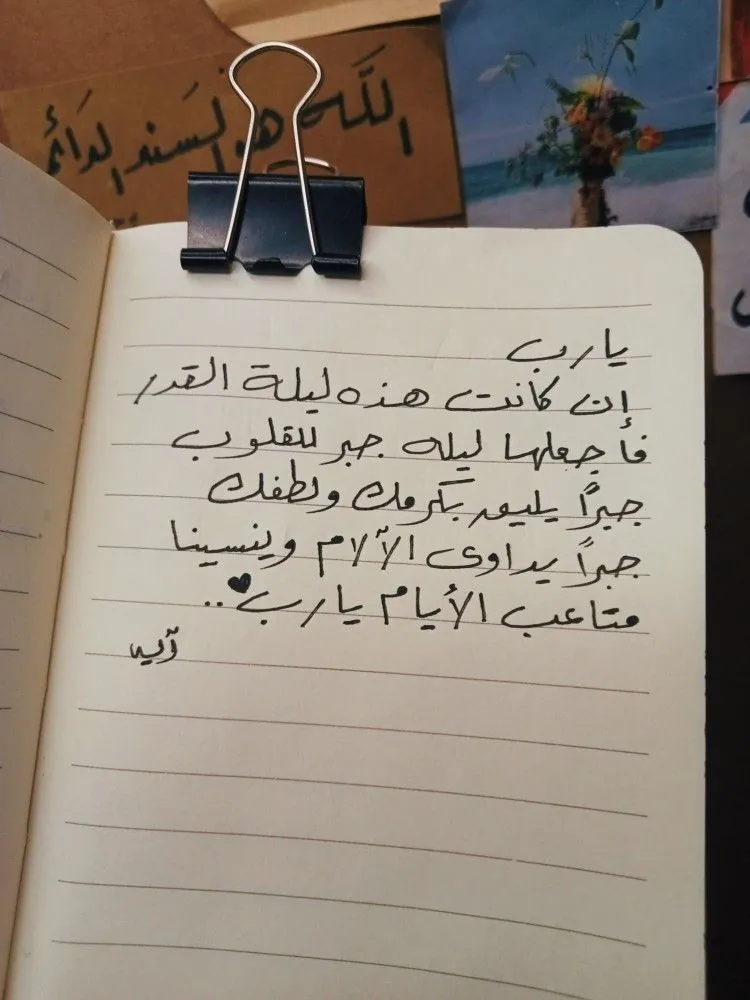 الله هو السند الدائم
يارب
إن كانت هذه ليلة القدر
فاجعلها ليله جبر للقلوب
جبراً يليق بكرمك ولطفك
جبراً يداوى الآلام وينسينا
متاعب الأيام يارب♥..
آيه